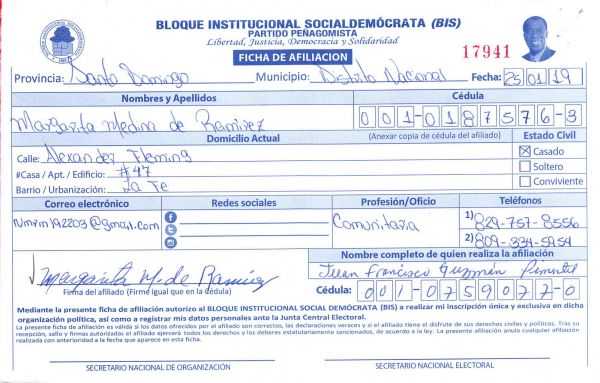 BLOQUE INSTITUCIONAL SOCIALDEMÓCRATA (BIS)
PARTIDO PEÑAGOMISTA
Libertad, Justicia, Democracia y Solidaridad
17941
FICHA DE AFILIACION
Provincia: Santo Domingo Municipio: Distrito Nacional Fecha: 25/01/19
Nombres y Apellidos Cédula
Margarita Medina de Ramirez 001-0187576-3
Domicilio Actual (Anexar copia de cédula del afiliado) Estado Civil
Calle: Alexander Fleming Casado
#Casa / Apt. / Edificio: #47 Soltero
Barrio / Urbanización: La Fe Conviviente
Correo electrónico Redes sociales Profesión/Oficio Teléfonos
@gmail.com Comunitaria 1) 829-757-8556
2) 809-334-5954
Nombre completo de quien realiza la afiliación
Margarita M. de Ramirez Juan Francisco Guzmán Pimentel
Firma del afiliado (Firme igual que en la Cédula) Cédula: 001-0759077-0
Mediante la presente ficha de afiliación autorizo al BLOQUE INSTITUCIONAL SOCIAL DEMÓCRATA (BIS) a realizar mi inscripción única y exclusiva en dicha
organización política, así como a registrar mis datos personales ante la Junta Central Electoral.
La presente ficha de afiliación es válida si los datos ofrecidos por el afiliado son correctos, las declaraciones veraces y si el afiliado tiene el disfrute de sus derechos civiles y políticos. Tras su
recepción, sello y firmas autorizadas el afiliado ejercerá todos los derechos y los deberes estatutariamente sancionados, de acuerdo a la ley. La presente afiliación anula cualquier afiliación
realizada con anterioridad a la fecha que aparece en esta ficha.
SECRETARIO NACIONAL DE ORGANIZACIÓN SECRETARIO NACIONAL ELECTORAL